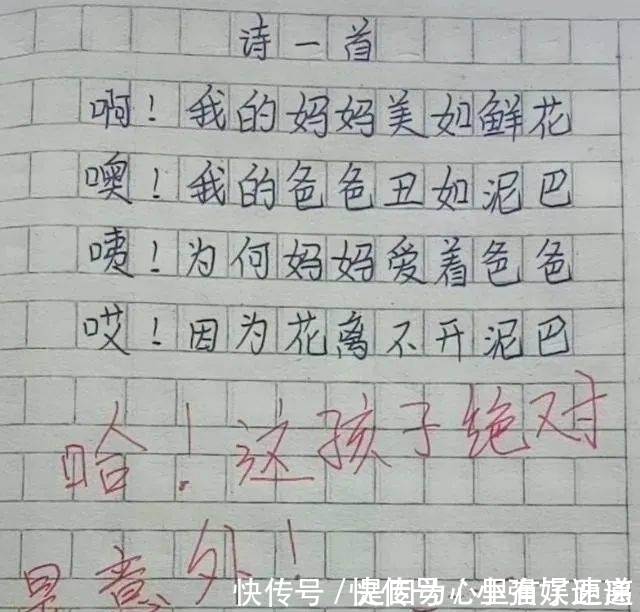 诗一首
啊！我的妈妈美如鲜花
噢！我的爸爸丑如泥巴
咦！为何妈妈爱着爸爸
哎！因为花离不开泥巴
哈！这孩子绝对
是意外！
快传号／